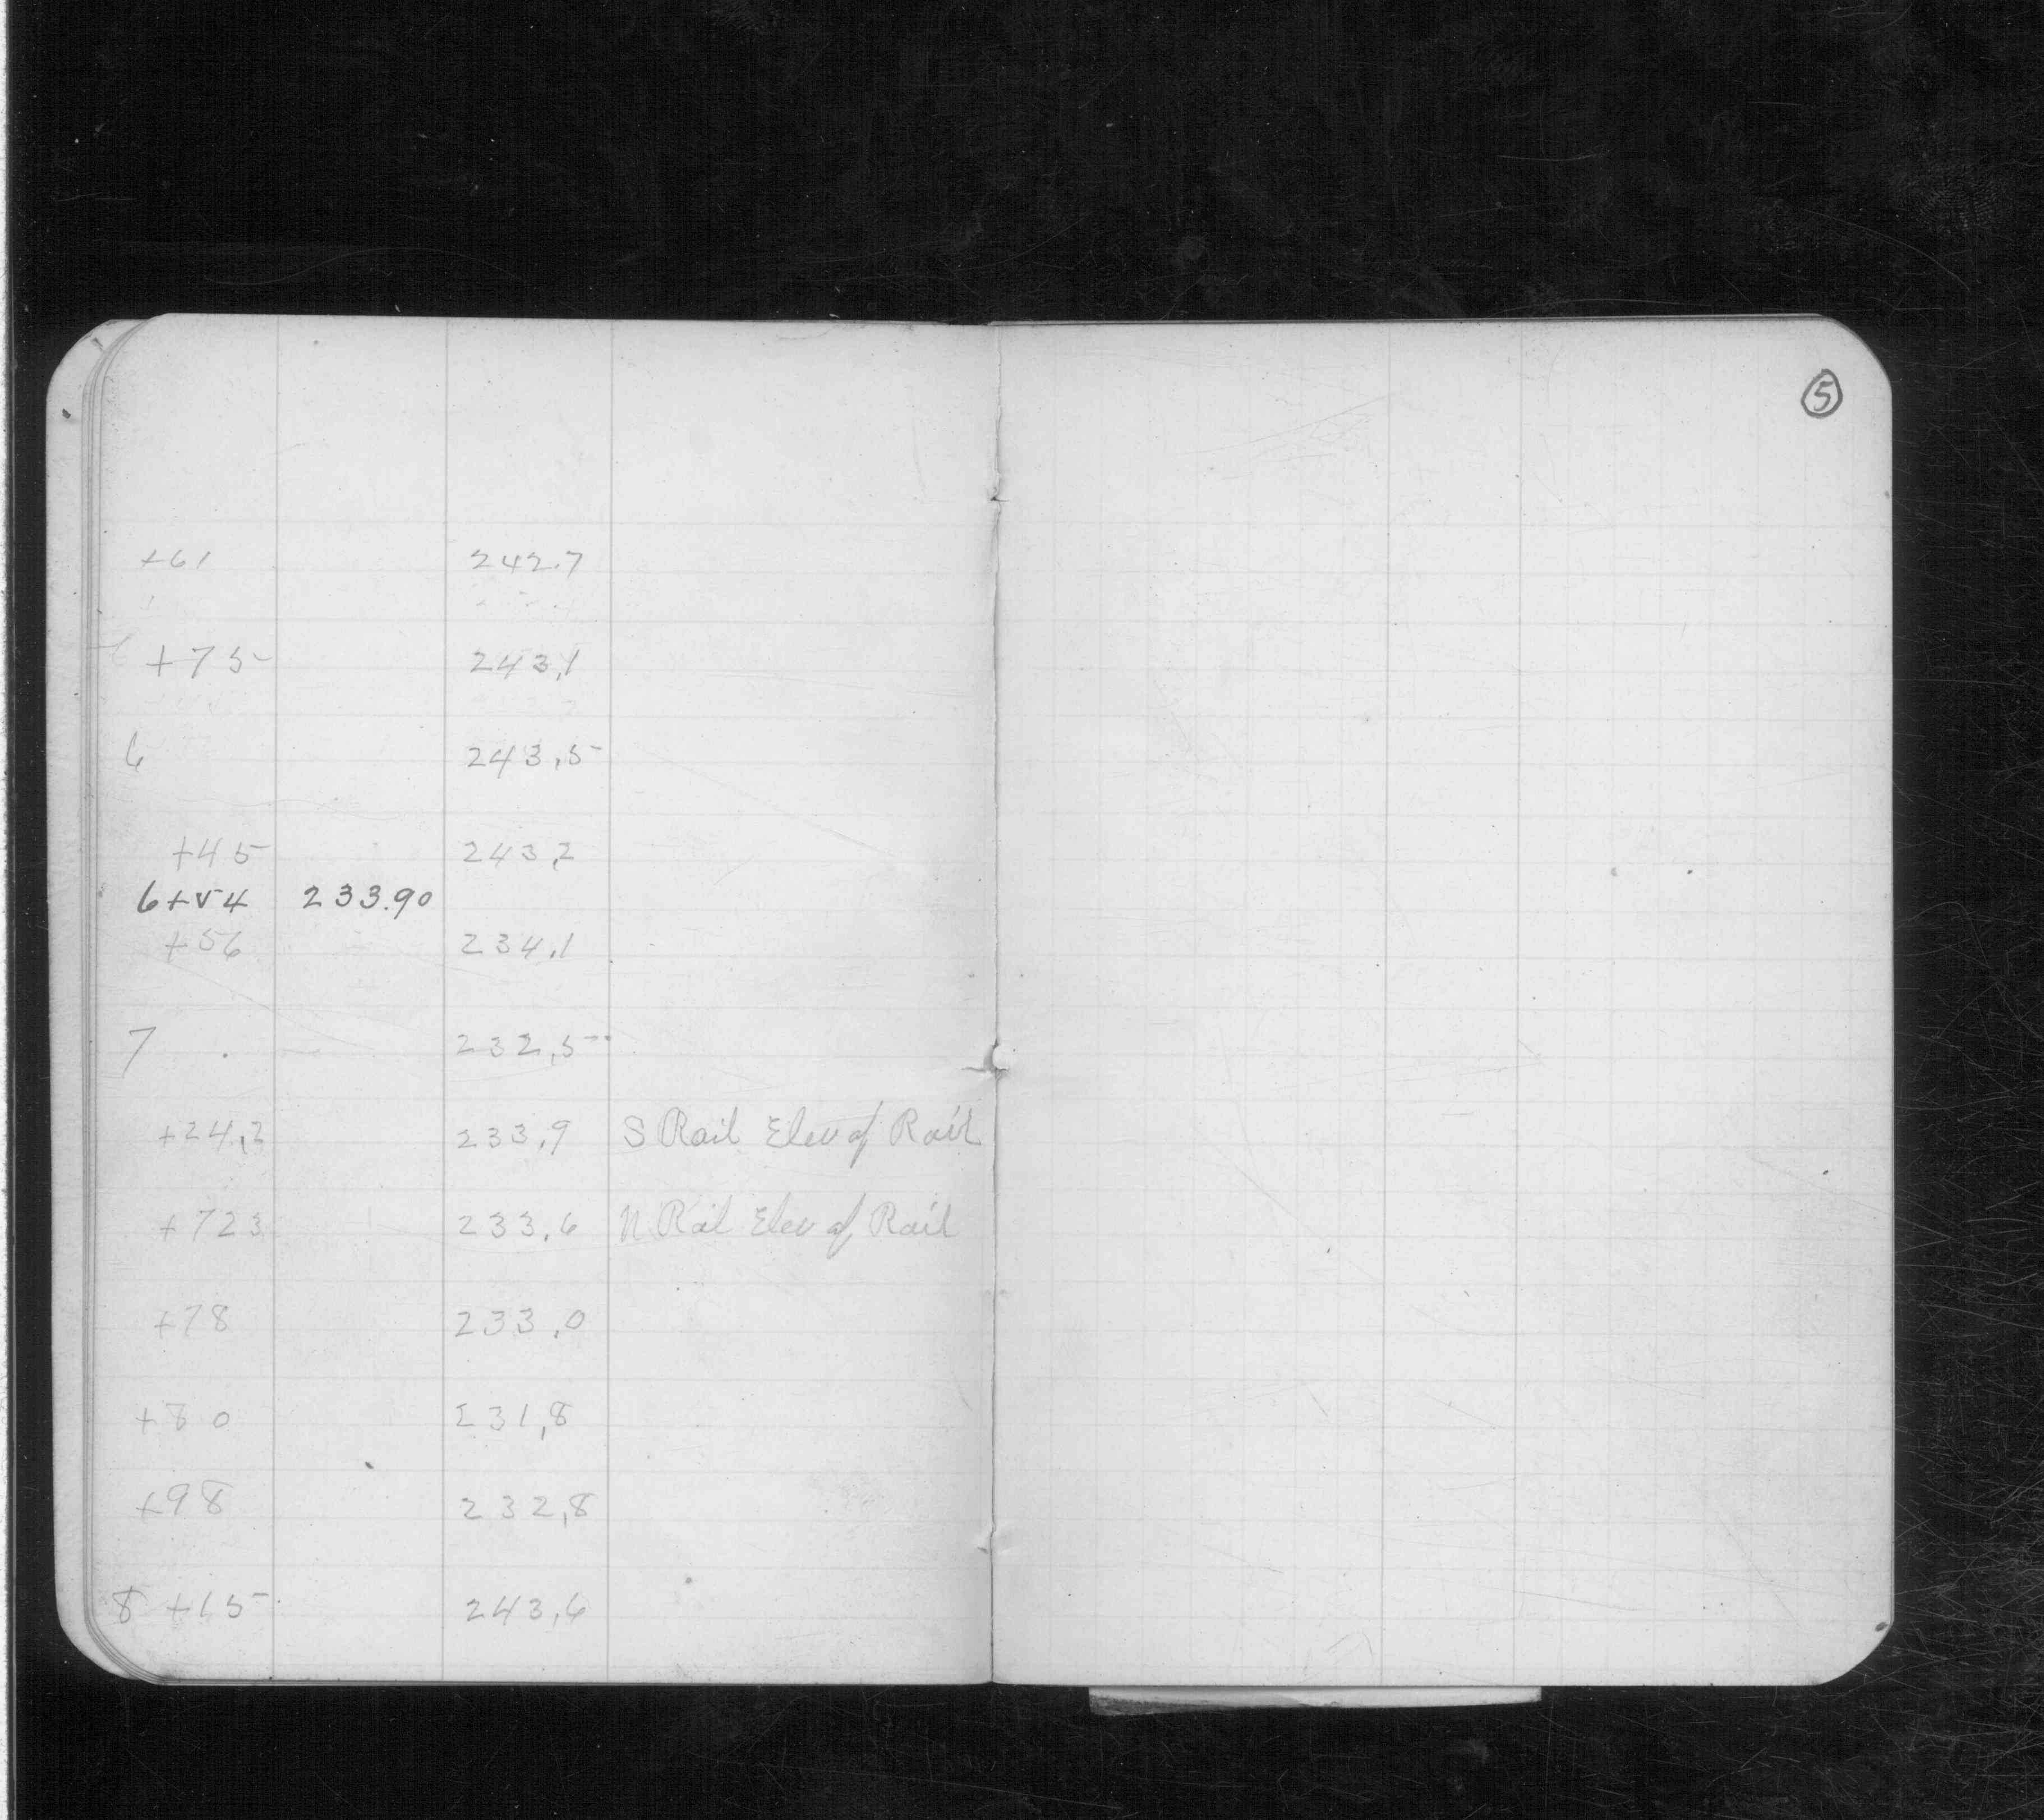 5
+61 242.7
+75 243.1
6 243.5
+45 243.2
6+54 233.90
+56 234.1
7 232.5
+24.2 233.9 S Rail Elev of Rail
+723 233.6 N Rail Elev of Rail
+78 233.0
+80 231.8
+98 232.8
8 +15 243.6